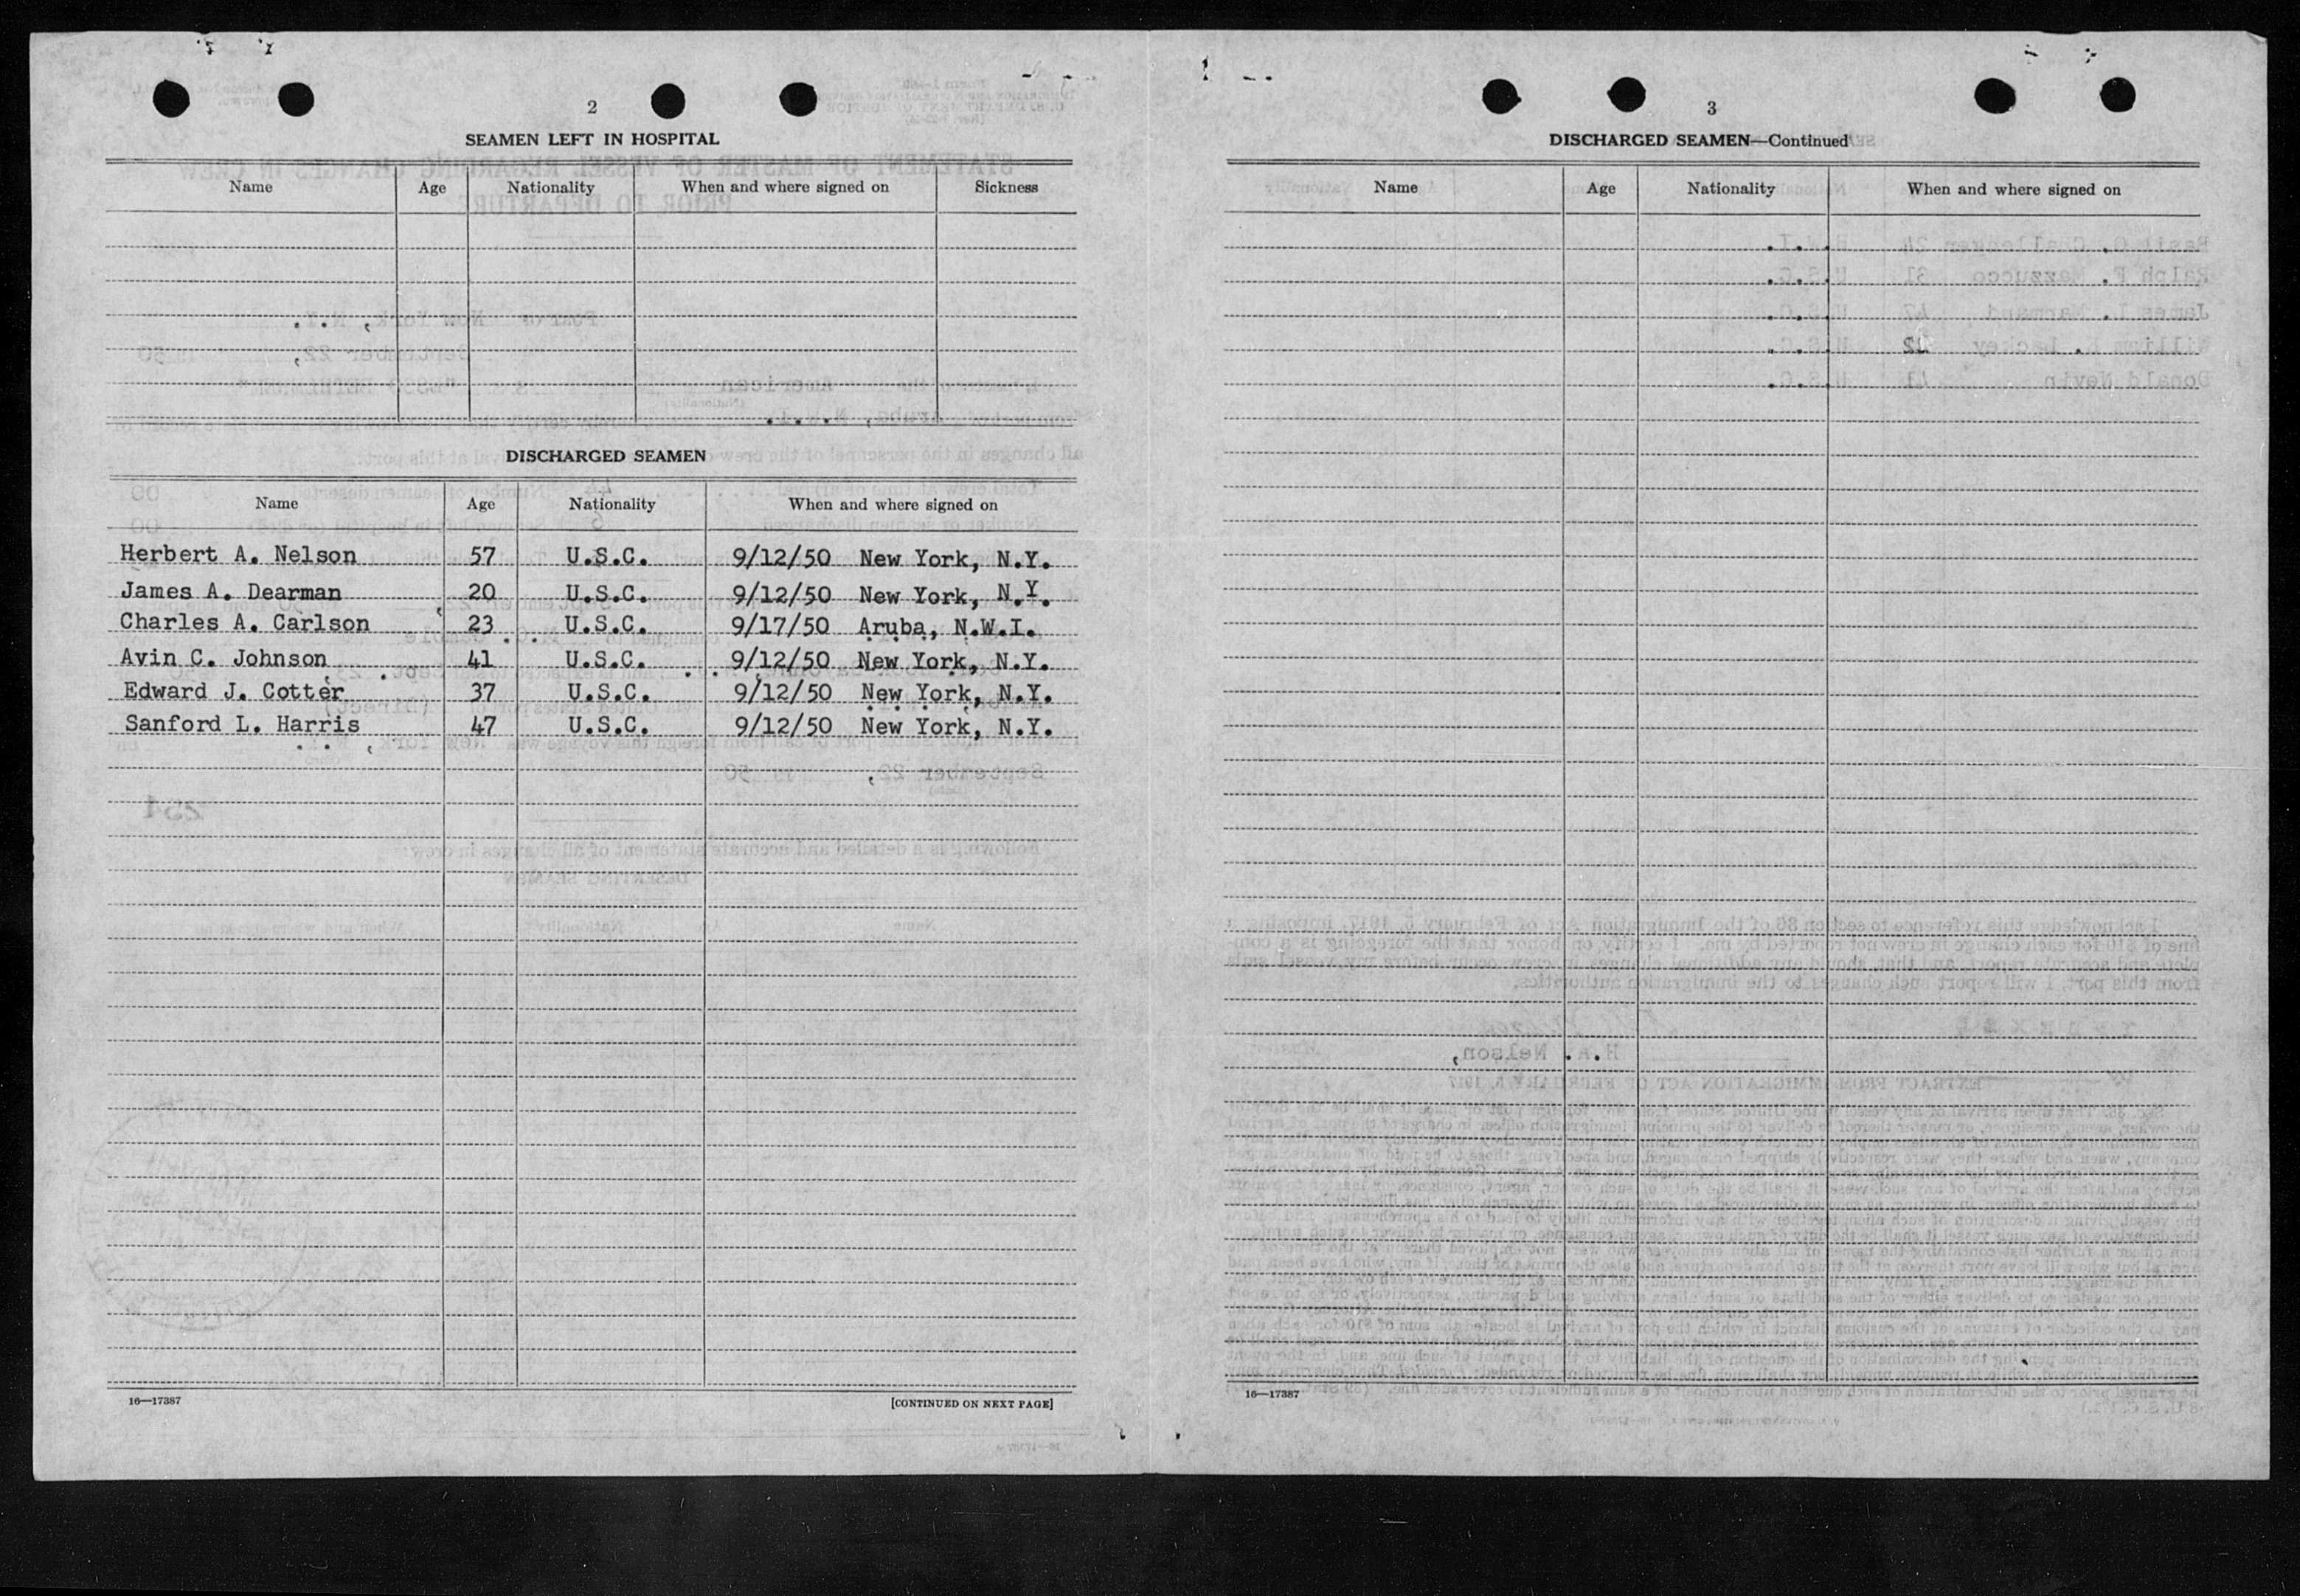 2
SEAMEN LEFT IN HOSPITAL
Name Age Nationality When and where signed on Sickness
DISCHARGED SEAMEN
Name Age Nationality When and where signed on
Herbert A. Nelson 57 U.S.C. 9/12/50 New York, N.Y.
James A. Dearman 20 U.S.C. 9/12/50 New York, N.Y.
Charles A. Carlson 23 U.S.C. 9/17/50 Aruba, N.W.I.
Avin C. Johnson 41 U.S.C. 9/12/50 New York, N.Y.
Edward J. Cotter 37 U.S.C. 9/12/50 New York, N.Y.
Sanford L. Harris 47 U.S.C. 9/12/50 New York, N.Y.
16—17387 [CONTINUED ON NEXT PAGE]
3
DISCHARGED SEAMEN—Continued
Name Age Nationality When and where signed on
16—17387